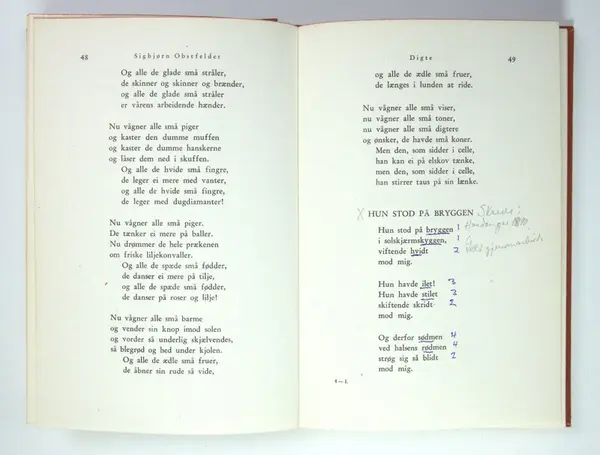 48
Sigbjørn Obstfelder
Og alle de glade små stråler,
de skinner og skinner og brænder,
og alle de glade små stråler
er vårens arbeidende hænder.
Nu vågner alle små piger
og kaster den dumme muffen
og kaster de dumme hanskerne
og låser dem ned i skuffen.
Og alle de hvide små fingre,
de leger ei mere med vanter,
og alle de hvide små fingre,
de leger med dugdiamanter!
Nu vågner alle små piger.
De tænker ei mere på baller.
Nu drømmer de hele prækenen
om friske liljekonvaller.
Og alle de spæde små fødder,
de danser ei mere på tilje,
og alle de spæde små fødder,
de danser på roser og lilje!
Nu vågner alle små barme
og vender sin knop imod solen
og vorder så underlig skjælvendes,
så blegrød og hed under kjolen.
Og alle de ædle små fruer,
de åbner sin rude så vide,
Digte
49
og alle de ædle små fruer,
de længes i lunden at ride.
Nu vågner alle små viser,
nu vågner alle små toner,
nu vågner alle små digtere
og ønsker, de havde små koner.
Men den, som sidder i celle,
han kan ei på elskov tænke,
men den, som sidder i celle,
han stirrer taus på sin lænke.
X HUN STOD PÅ BRYGGEN
Hun stod på bryggen 1
i solskjærmskyggen, 1
viftende hvidt 2
mod mig.
Hun havde ilet! 3
Hun havde stilet 3
skiftende skridt 2
mod mig.
Og derfor sødmen 4
ved halsens rødmen 4
strøg sig så blidt 2
mod mig.
4—I.